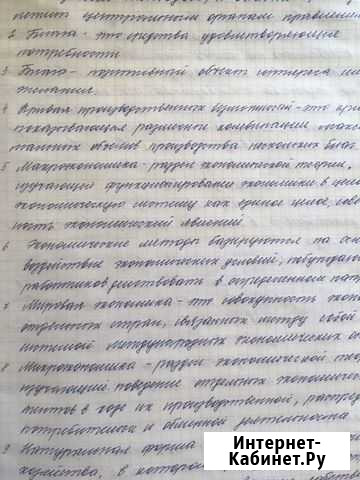 нения центральным органам правлений
2 Блага - это средства удовлетворяющие
потребности
3 Благо - позитивный объект интереса или
желания.
4 Кривая производственных возможностей - это
показывающая различные комбинации
объёмов производства нескольких благ
5 Макроэкономика - раздел экономической теории,
изучающий функционирование экономики в целом
экономическую систему как единое целое, сово
ность экономических явлений.
6 Экономические методы базируются на
воздействие экономических условий, побужда
работников действовать в определенном
7 Мировая экономика - это совокупность
стран, связанных между собой
системой международных экономических
8 Микроэкономика - раздел экономической
изучающий поведение отдельных
в ходе их производственной,
потребительск и обменной деятельности
9 Натуральная форма
хозяйства, в котором
Интернет-
Кабинет.Ру